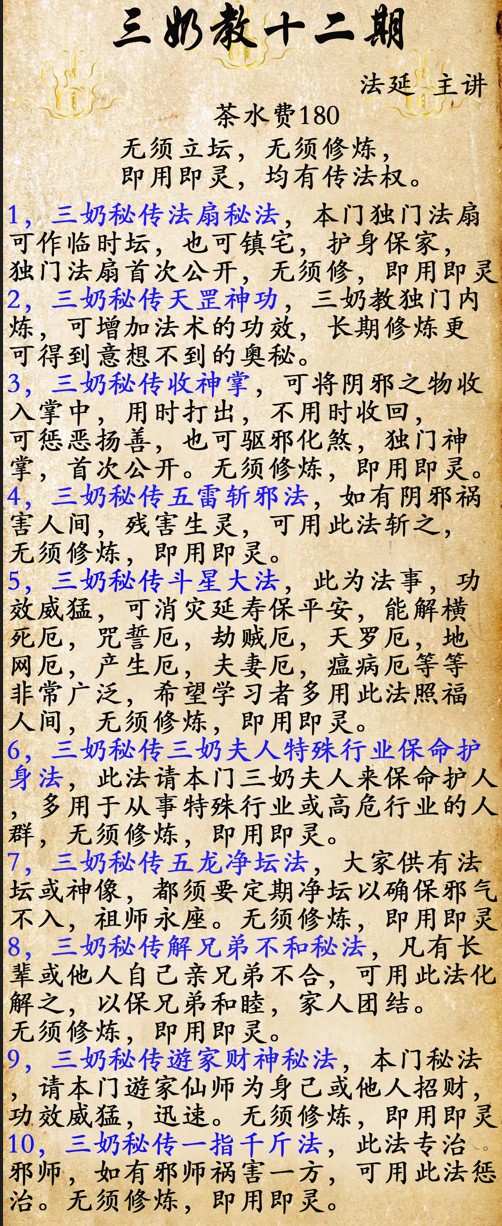 三奶教十二期
法延 主讲
茶水费180
无须立坛，无须修炼，
即用即灵，均有传法权。
1，三奶秘传法扇秘法，本门独门法扇
可作临时坛，也可镇宅，护身保家，
独门法扇首次公开，无须修，即用即灵
2，三奶秘传天罡神功，三奶教独门内
炼，可增加法术的功效，长期修炼更
可得到意想不到的奥秘。
3，三奶秘传收神掌，可将阴邪之物收
入掌中，用时打出，不用时收回，
可惩恶扬善，也可驱邪化煞，独门神
掌，首次公开。无须修炼，即用即灵。
4，三奶秘传五雷斩邪法，如有阴邪祸
害人间，残害生灵，可用此法斩之，
无须修炼，即用即灵。
5，三奶秘传斗星大法，此为法事，功
效威猛，可消灾延寿保平安，能解横
死厄，咒誓厄，劫贼厄，天罗厄，地
网厄，产生厄，夫妻厄，瘟病厄等等
非常广泛，希望学习者多用此法照福
人间，无须修炼，即用即灵。
6，三奶秘传三奶夫人特殊行业保命护
身法，此法请本门三奶夫人来保命护人
，多用于从事特殊行业或高危行业的人
群，无须修炼，即用即灵。
7，三奶秘传五龙净坛法，大家供有法
坛或神像，都须要定期净坛以确保邪气
不入，祖师永座。无须修炼，即用即灵
8，三奶秘传解兄弟不和秘法，凡有长
辈或他人自己亲兄弟不合，可用此法化
解之，以保兄弟和睦，家人团结。
无须修炼，即用即灵。
9，三奶秘传遊家财神秘法，本门秘法
，请本门遊家仙师为身己或他人招财，
功效威猛，迅速。无须修炼，即用即灵
10，三奶秘传一指千斤法，此法专治。
邪师，如有邪师祸害一方，可用此法惩
治。无须修炼，即用即灵。